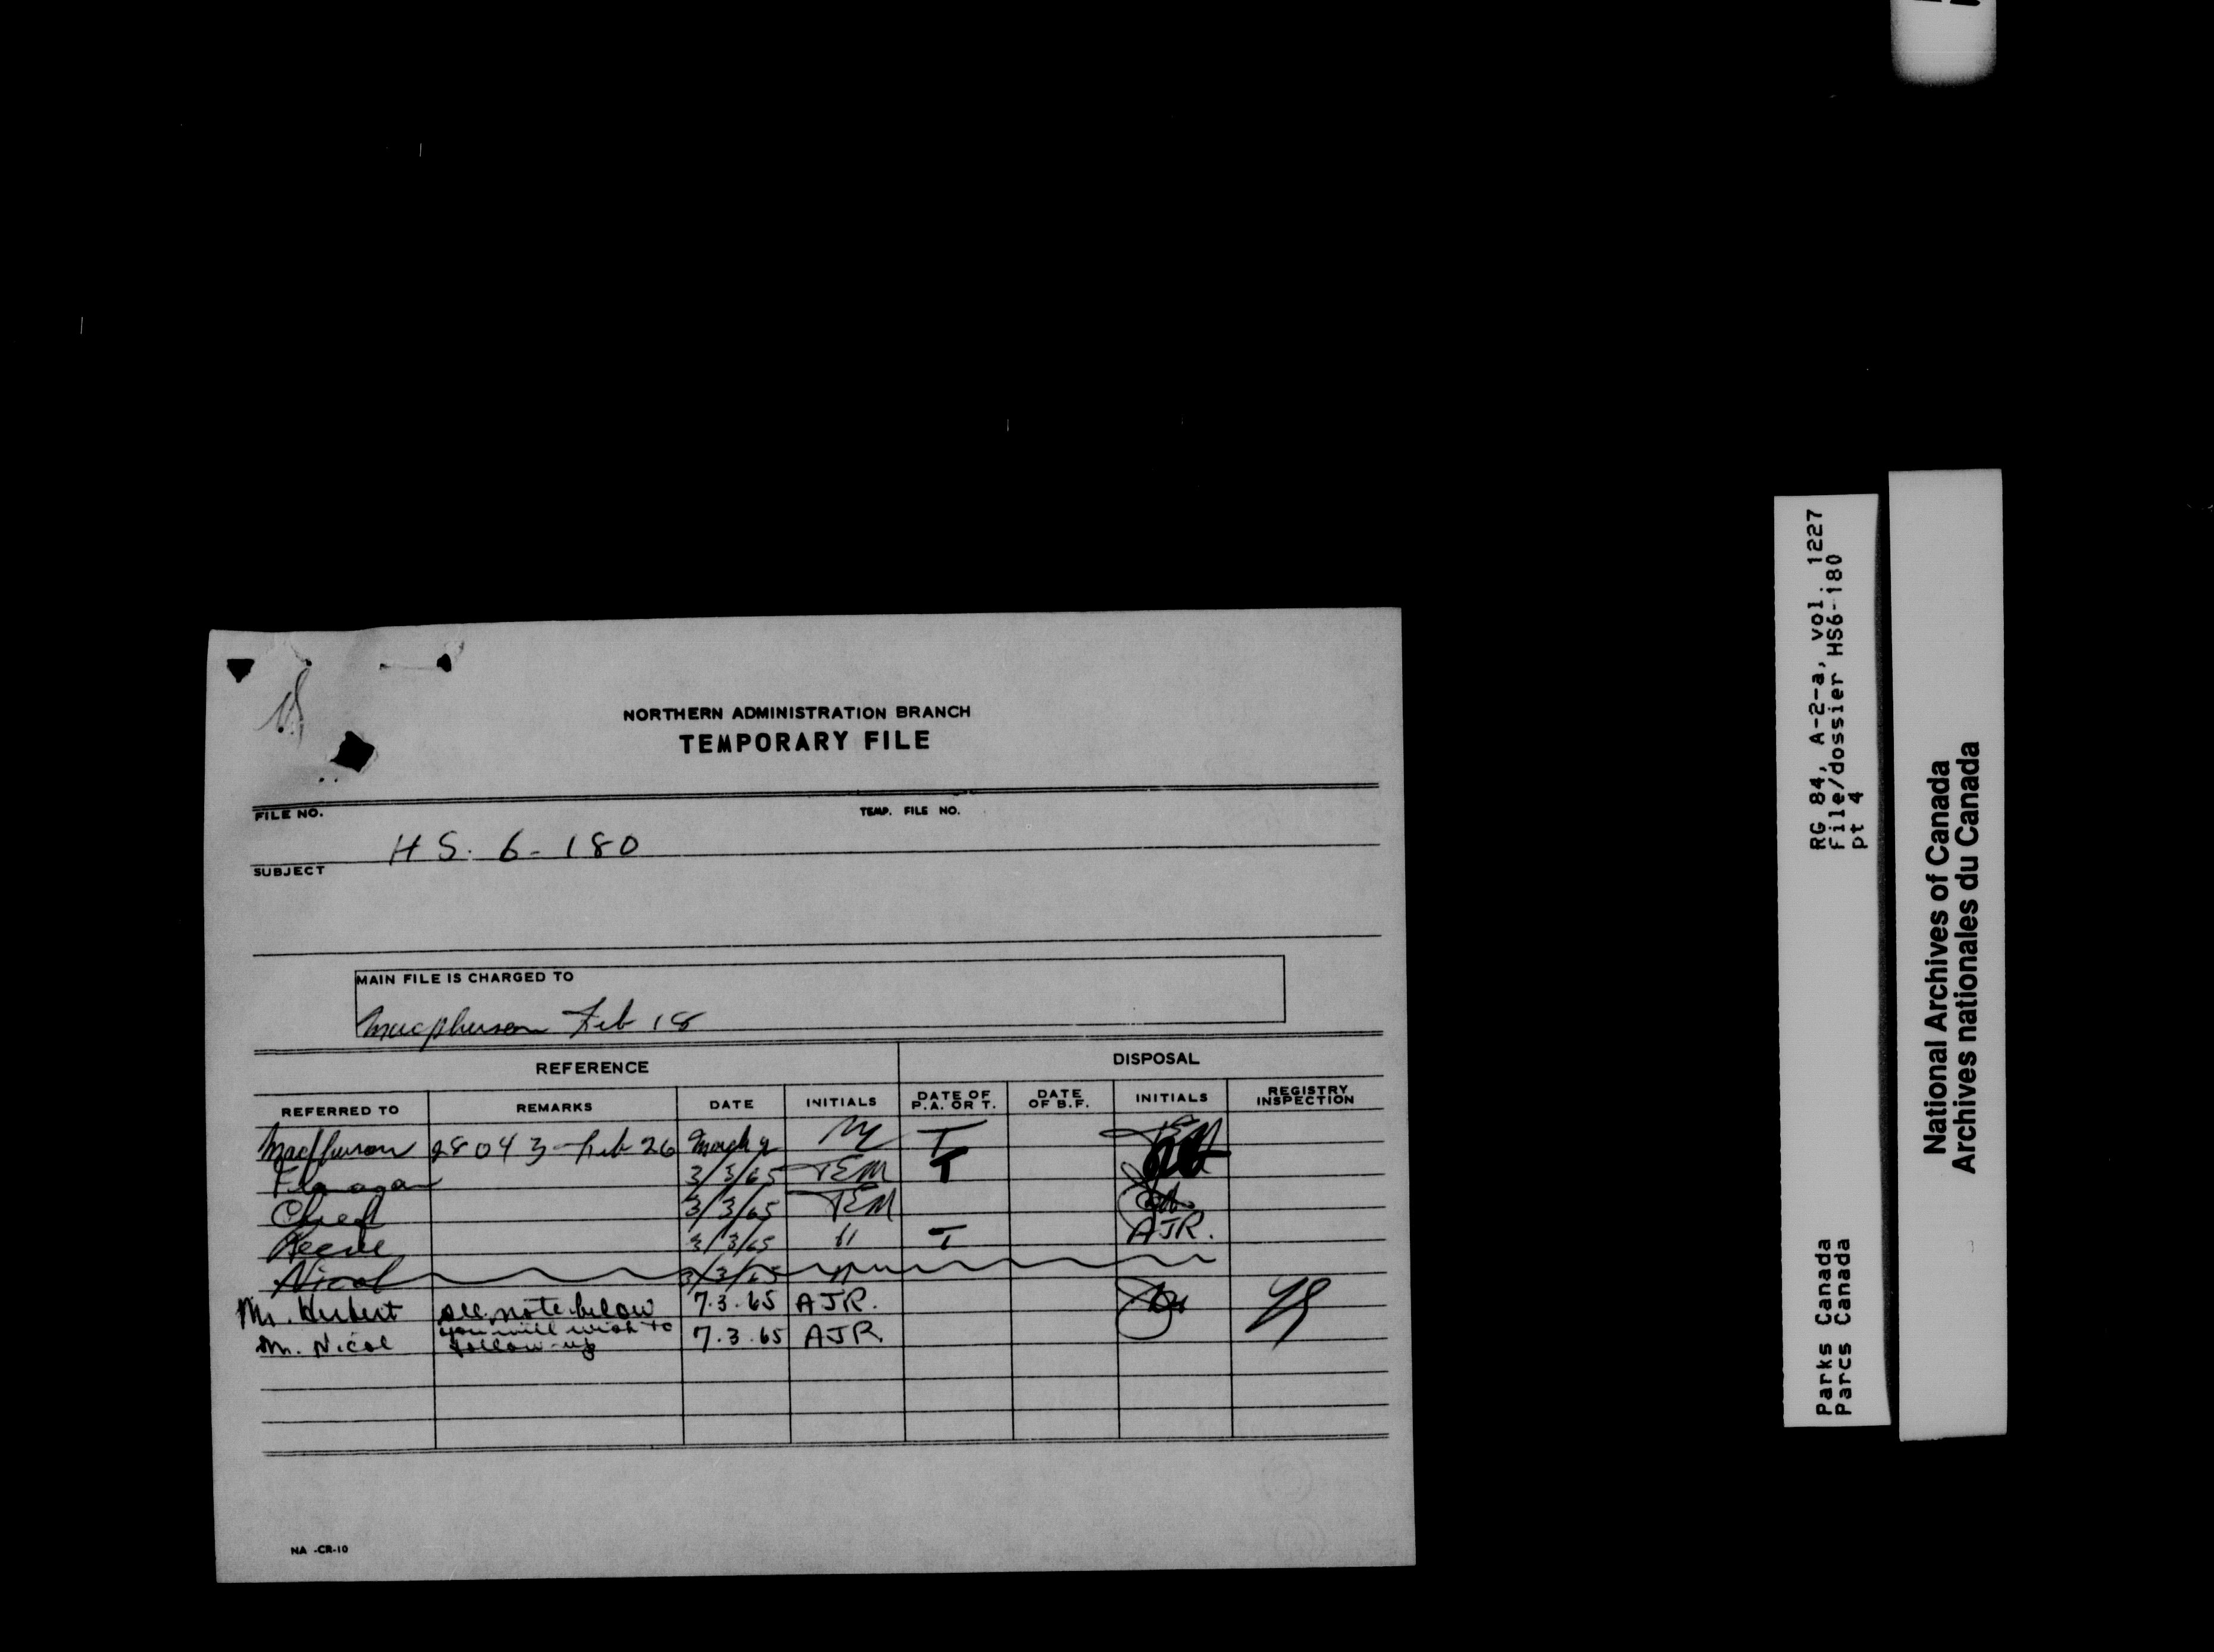 NORTHERN ADMINISTRATION BRANCH
TEMPORARY FILE
FILE NO. TEMP. FILE NO.
HS. 6-180
SUBJECT
MAIN FILE IS CHARGED TO
Macpherson Feb 18
REFERENCE DISPOSAL
REFERRED TO REMARKS DATE INITIALS DATE OF P.A. OR T. DATE OF B.F. INITIALS REGISTRY INSPECTION
MacPherson 28043 - Feb 26 March T TEM
Flanagan 3/3/65 TEM T
Chief 3/3/65 TEM
Reeve 3/3/65 " T AJR.
Nicol 3/3/65 "
Mr. Herbert see note below 7.3.65 AJR.
Mr. Nicol you will wish to follow-up 7.3.65 AJR.
NA -CR-10
RG 84, A-2-a, vol. 1227
File/dossier HS6-180
pt 4
Parks Canada
Parcs Canada
National Archives of Canada
Archives nationales du Canada